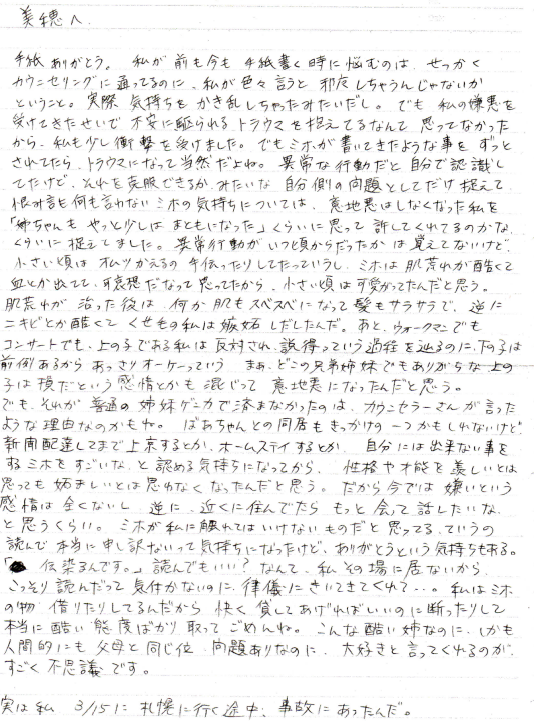 美穂へ
手紙ありがとう。 私が前も今も手紙書く時に悩むのは、せっかく
カウンセリングに通ってるのに、私が色々言うと邪魔しちゃうんじゃないか
ということ。実際気持ちをかき乱しちゃったみたいだし。でも私の嫌悪を
受けてきたせいで不安に駆られるトラウマを抱えてるなんて思ってなかった
から、私も少し衝撃を受けました。でもミホが書いてきたような事をずっと
されてたら、トラウマになって当然だよね。 異常な行動だと自分で認識し
てたけど、それを克服できるか、みたいな自分側の問題としてだけ捉えて
恨み言も何も言わないミホの気持ちについては、意地悪はしなくなった私を
「姉ちゃんもやっと少しはまともになった」くらいに思って許してくれてるのかな、
くらいに捉えてました。異常行動がいつ頃からだったかは覚えてないけど、
小さい頃はオムツかえるの手伝ったりしてたっていうし、ミホは肌荒れが酷くて
血とか出てて、可哀想だなって思ってたから、小さい頃は可愛がってたんだと思う。
肌荒れが治った後は、何か肌もスベスベになって髪もサラサラで、逆に
ニキビとか酷くてくせ毛の私は嫉妬しだしたんだ。あと、ウォークマンでも
コンサートでも、上の子である私は反対され、説得っていう過程を辿るのに、下の子は
前例あるからあっさりオーケーっていう まぁ、どこの兄弟姉妹でもありがちな上の
子は損だという感情とかも混じって意地悪になったんだと思う。
でも、それが普通の姉妹ゲンカで済まなかったのは、カウンセラーさんが言った
ような理由なのかもね。 ばあちゃんとの同居もきっかけの一つかもしれないけど。
新聞配達してまで上京するとか、ホームステイするとか、自分には出来ない事を
するミホをすごいな、と認める気持ちになってから、性格や才能を羨しいとは
思っても妬ましいとは思わなくなったんだと思う。だから今では嫌いという
感情は全くないし、逆に、近くに住んでたらもっと会って話したいな、
と思うくらい。ミホが私に触れてはいけないものだと思ってる、ていうの
読んで本当に申し訳ないって気持ちになったけど、ありがとうという気持ちもある。
「伝染るんです。」読んでもいい？なんて、私その場に居ないから、
こっそり読んだって気付かないのに、律儀にきいてきてくれて…。私はミホ
の物借りたりしてるんだから快く貸してあげればいいのに断ったりして
本当に酷い態度ばかり取ってごめんね。こんな酷い姉なのに、しかも
人間的にも父母と同じ位問題ありなのに、大好きと言ってくれるのが、
すごく不思議です。
実は私 3/15に札幌に行く途中、事故にあったんだ。